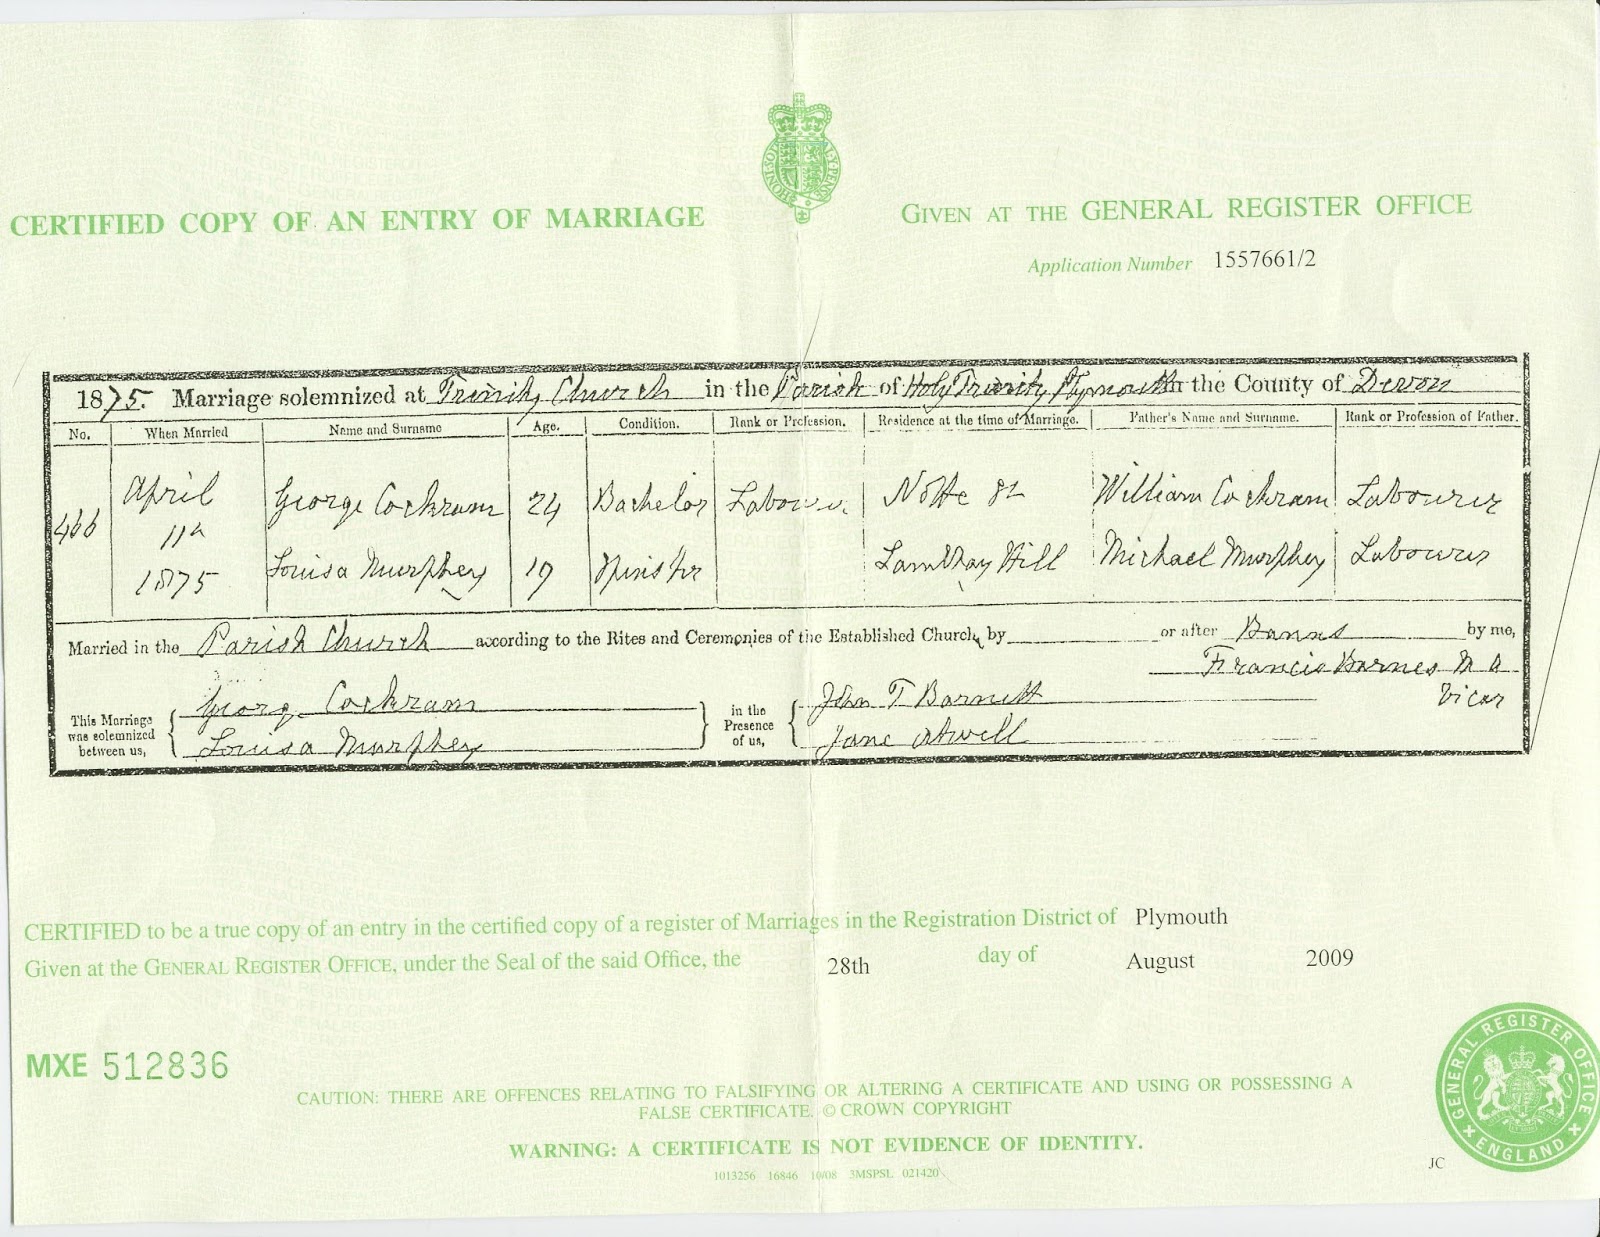 HONI SOIT QUI MAL Y PENSE
CERTIFIED COPY OF AN ENTRY OF MARRIAGE
GIVEN AT THE GENERAL REGISTER OFFICE
Application Number 1557661/2
1875. Marriage solemnized at Trinity Church in the Parish of Holy Trinity Plymouth in the County of Devon
No. When Married Name and Surname Age. Condition. Rank or Profession. Residence at the time of Marriage. Father's Name and Surname. Rank or Profession of Father.
466 April 11th 1875
George Cockram 24 Bachelor Labourer Notte St William Cockram Labourer
Louisa Murphey 19 Spinster Lambhay Hill Michael Murphey Labourer
Married in the Parish Church according to the Rites and Ceremonies of the Established Church, by or after Banns by me,
Francis Barnes M A
Vicar
This Marriage was solemnized between us,
George Cockram
Louisa Murphey
in the Presence of us,
John T Barnett
Jane Atwell
CERTIFIED to be a true copy of an entry in the certified copy of a register of Marriages in the Registration District of Plymouth
Given at the GENERAL REGISTER OFFICE, under the Seal of the said Office, the 28th day of August 2009
MXE 512836
CAUTION: THERE ARE OFFENCES RELATING TO FALSIFYING OR ALTERING A CERTIFICATE AND USING OR POSSESSING A
FALSE CERTIFICATE. © CROWN COPYRIGHT
WARNING: A CERTIFICATE IS NOT EVIDENCE OF IDENTITY.
1013256 16846 10/08 3MSPSL 021420
JC
GENERAL REGISTER OFFICE
ENGLAND